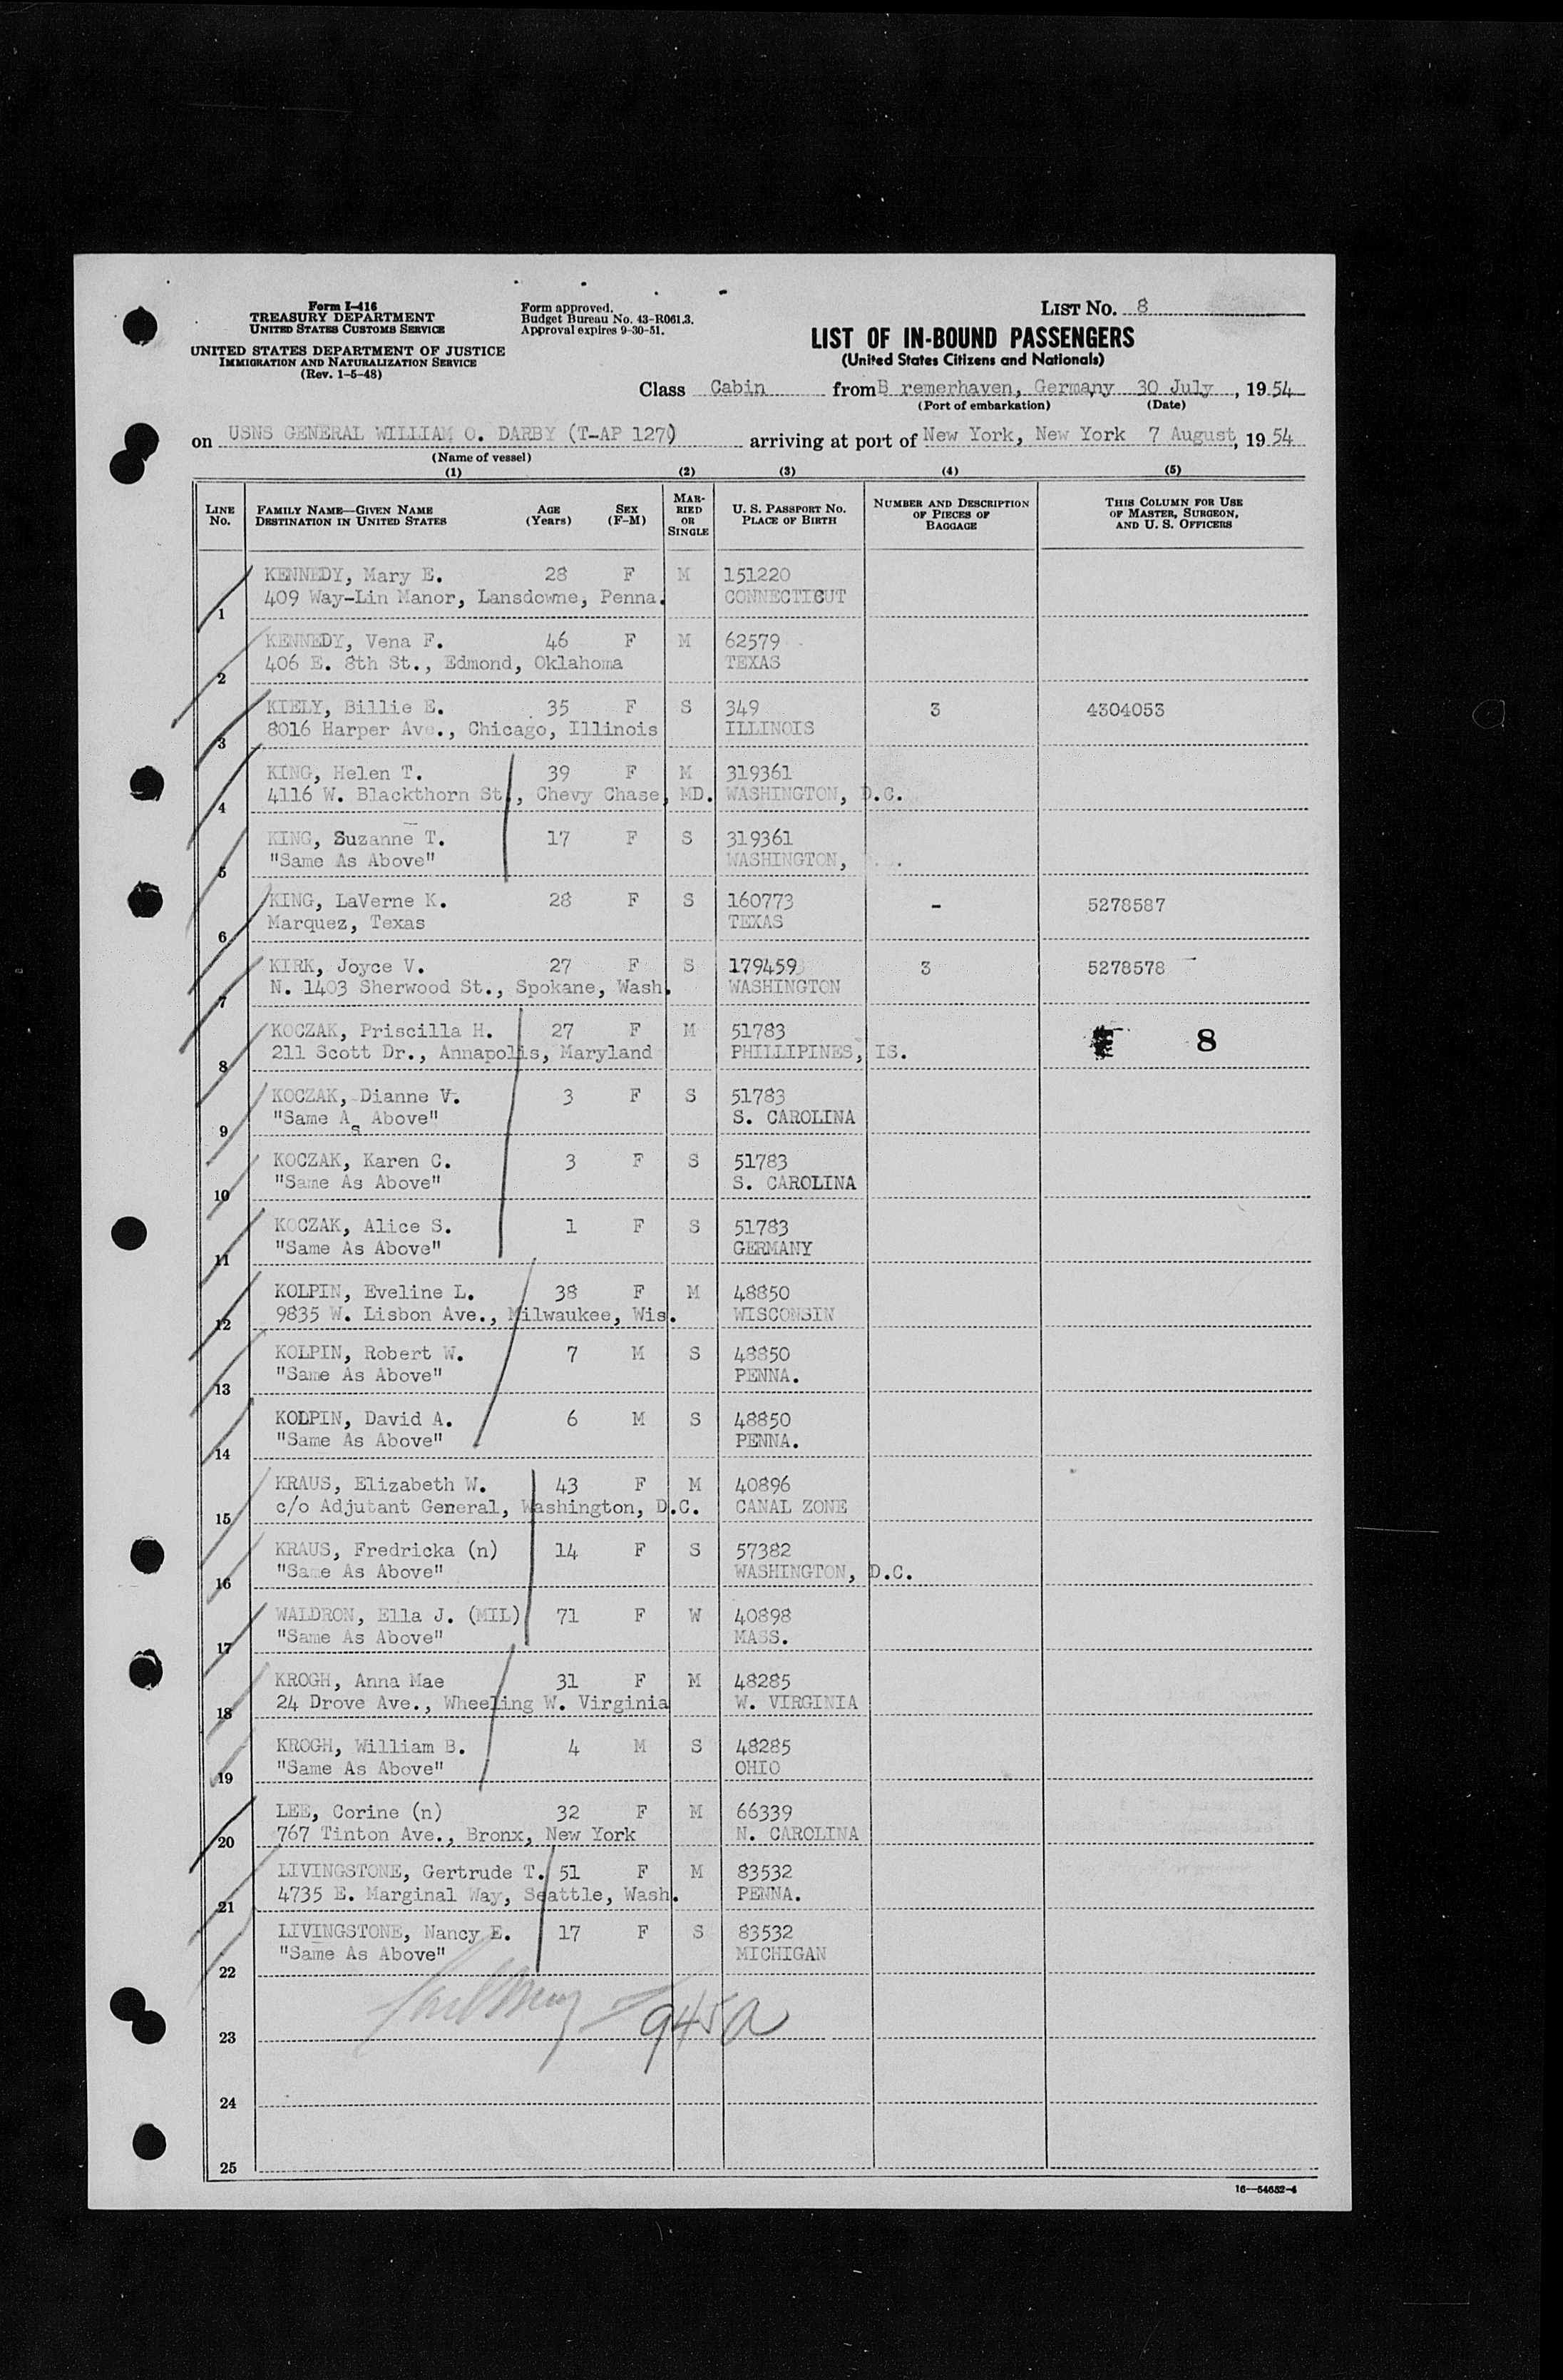 Form I-416
TREASURY DEPARTMENT
UNITED STATES CUSTOMS SERVICE
UNITED STATES DEPARTMENT OF JUSTICE
IMMIGRATION AND NATURALIZATION SERVICE
(Rev. 1-5-48)
Form approved.
Budget Bureau No. 43-R061.3.
Approval expires 9-30-51.
LIST No. 8
LIST OF IN-BOUND PASSENGERS
(United States Citizens and Nationals)
Class Cabin from B remerhaven, Germany 30 July, 1954
(Port of embarkation) (Date)
on USNS GENERAL WILLIAM O. DARBY (T-AP 127) arriving at port of New York, New York 7 August, 1954
(Name of vessel)
(1) (2) (3) (4) (5)
LINE No. FAMILY NAME—GIVEN NAME DESTINATION IN UNITED STATES AGE (Years) SEX (F-M) MARRIED OR SINGLE U. S. PASSPORT NO. PLACE OF BIRTH NUMBER AND DESCRIPTION OF PIECES OF BAGGAGE THIS COLUMN FOR USE OF MASTER, SURGEON, AND U. S. OFFICERS
KENNEDY, Mary E. 28 F M 151220
1 409 Way-Lin Manor, Lansdowne, Penna. CONNECTICUT
KENNEDY, Vena F. 46 F M 62579
2 406 E. 8th St., Edmond, Oklahoma TEXAS
KIELY, Billie E. 35 F S 349 3 4304053
3 8016 Harper Ave., Chicago, Illinois ILLINOIS
KING, Helen T. 39 F M 319361
4 4116 W. Blackthorn St., Chevy Chase, MD. WASHINGTON, D.C.
KING, Suzanne T. 17 F S 319361
5 "Same As Above" WASHINGTON,
KING, LaVerne K. 28 F S 160773 - 5278587
6 Marquez, Texas TEXAS
KIRK, Joyce V. 27 F S 179459 3 5278578
7 N. 1403 Sherwood St., Spokane, Wash. WASHINGTON
KOCZAK, Priscilla H. 27 F M 51783 8
8 211 Scott Dr., Annapolis, Maryland PHILLIPINES, IS.
KOCZAK, Dianne V. 3 F S 51783
9 "Same As Above" S. CAROLINA
KOCZAK, Karen C. 3 F S 51783
10 "Same As Above" S. CAROLINA
KOCZAK, Alice S. 1 F S 51783
11 "Same As Above" GERMANY
KOLPIN, Eveline L. 38 F M 48850
12 9835 W. Lisbon Ave., Milwaukee, Wis. WISCONSIN
KOLPIN, Robert W. 7 M S 48850
13 "Same As Above" PENNA.
KOLPIN, David A. 6 M S 48850
14 "Same As Above" PENNA.
KRAUS, Elizabeth W. 43 F M 40896
15 c/o Adjutant General, Washington, D.C. CANAL ZONE
KRAUS, Fredricka (n) 14 F S 57382
16 "Same As Above" WASHINGTON, D.C.
WALDRON, Ella J. (MIL) 71 F W 40898
17 "Same As Above" MASS.
KROGH, Anna Mae 31 F M 48285
18 24 Drove Ave., Wheeling W. Virginia W. VIRGINIA
KROGH, William B. 4 M S 48285
19 "Same As Above" OHIO
LEE, Corine (n) 32 F M 66339
20 767 Tinton Ave., Bronx, New York N. CAROLINA
LIVINGSTONE, Gertrude T. 51 F M 83532
21 4735 E. Marginal Way, Seattle, Wash. PENNA.
LIVINGSTONE, Nancy E. 17 F S 83532
22 "Same As Above" MICHIGAN
945a
23
24
25
16—54652-4